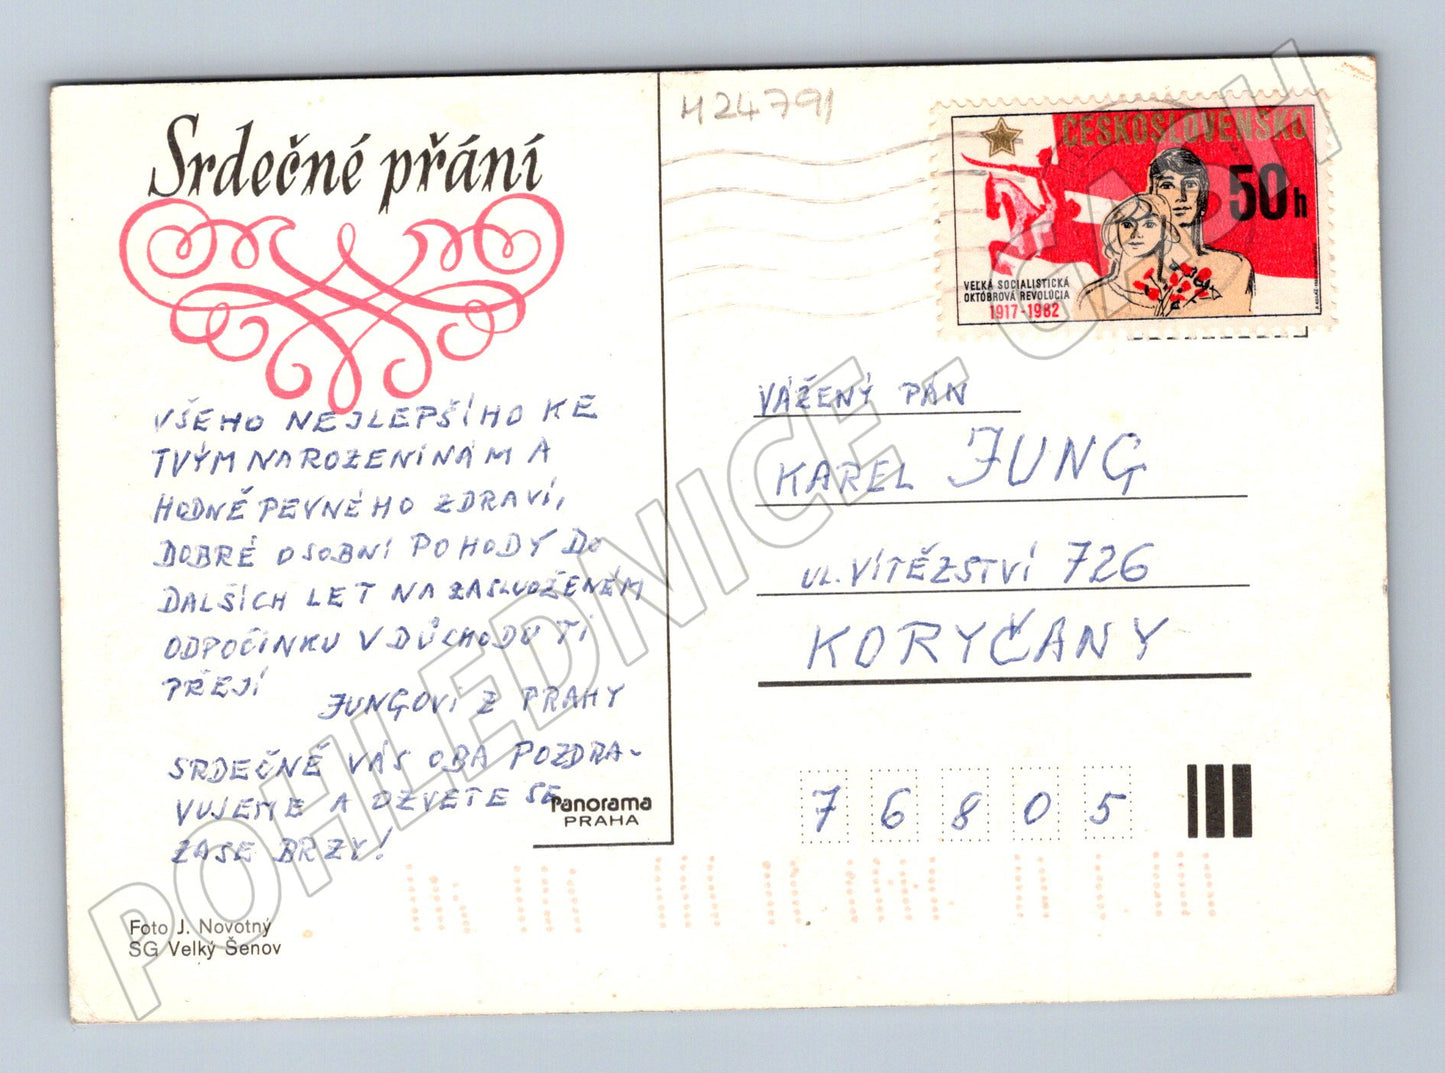 Srdečné přání
VŠEHO NEJLEPŠÍHO KE
TVÝM NAROZENINÁM A
HODNĚ PEVNÉHO ZDRAVÍ,
DOBRÉ OSOBNÍ POHODY DO
DALŠÍCH LET NA ZASLOUŽENÉM
ODPOČINKU V DŮCHODU TI
PŘEJÍ
JUNGOVI Z PRAHY
SRDEČNĚ VÁS OBA POZDRA-
VUJEME A OZVĚTE SE
ZASE BRZY!
Panorama
PRAHA
Foto J. Novotný
SG Velký Šenov
H24791
ČESKOSLOVENSKO
50h
VEĽKÁ SOCIALISTICKÁ
OKTÓBROVÁ REVOLÚCIA
1917-1982
VÁŽENÝ PÁN
KAREL JUNG
UL. VÍTĚZSTVÍ 726
KORYČANY
76805
POHLEDNICE - CASH